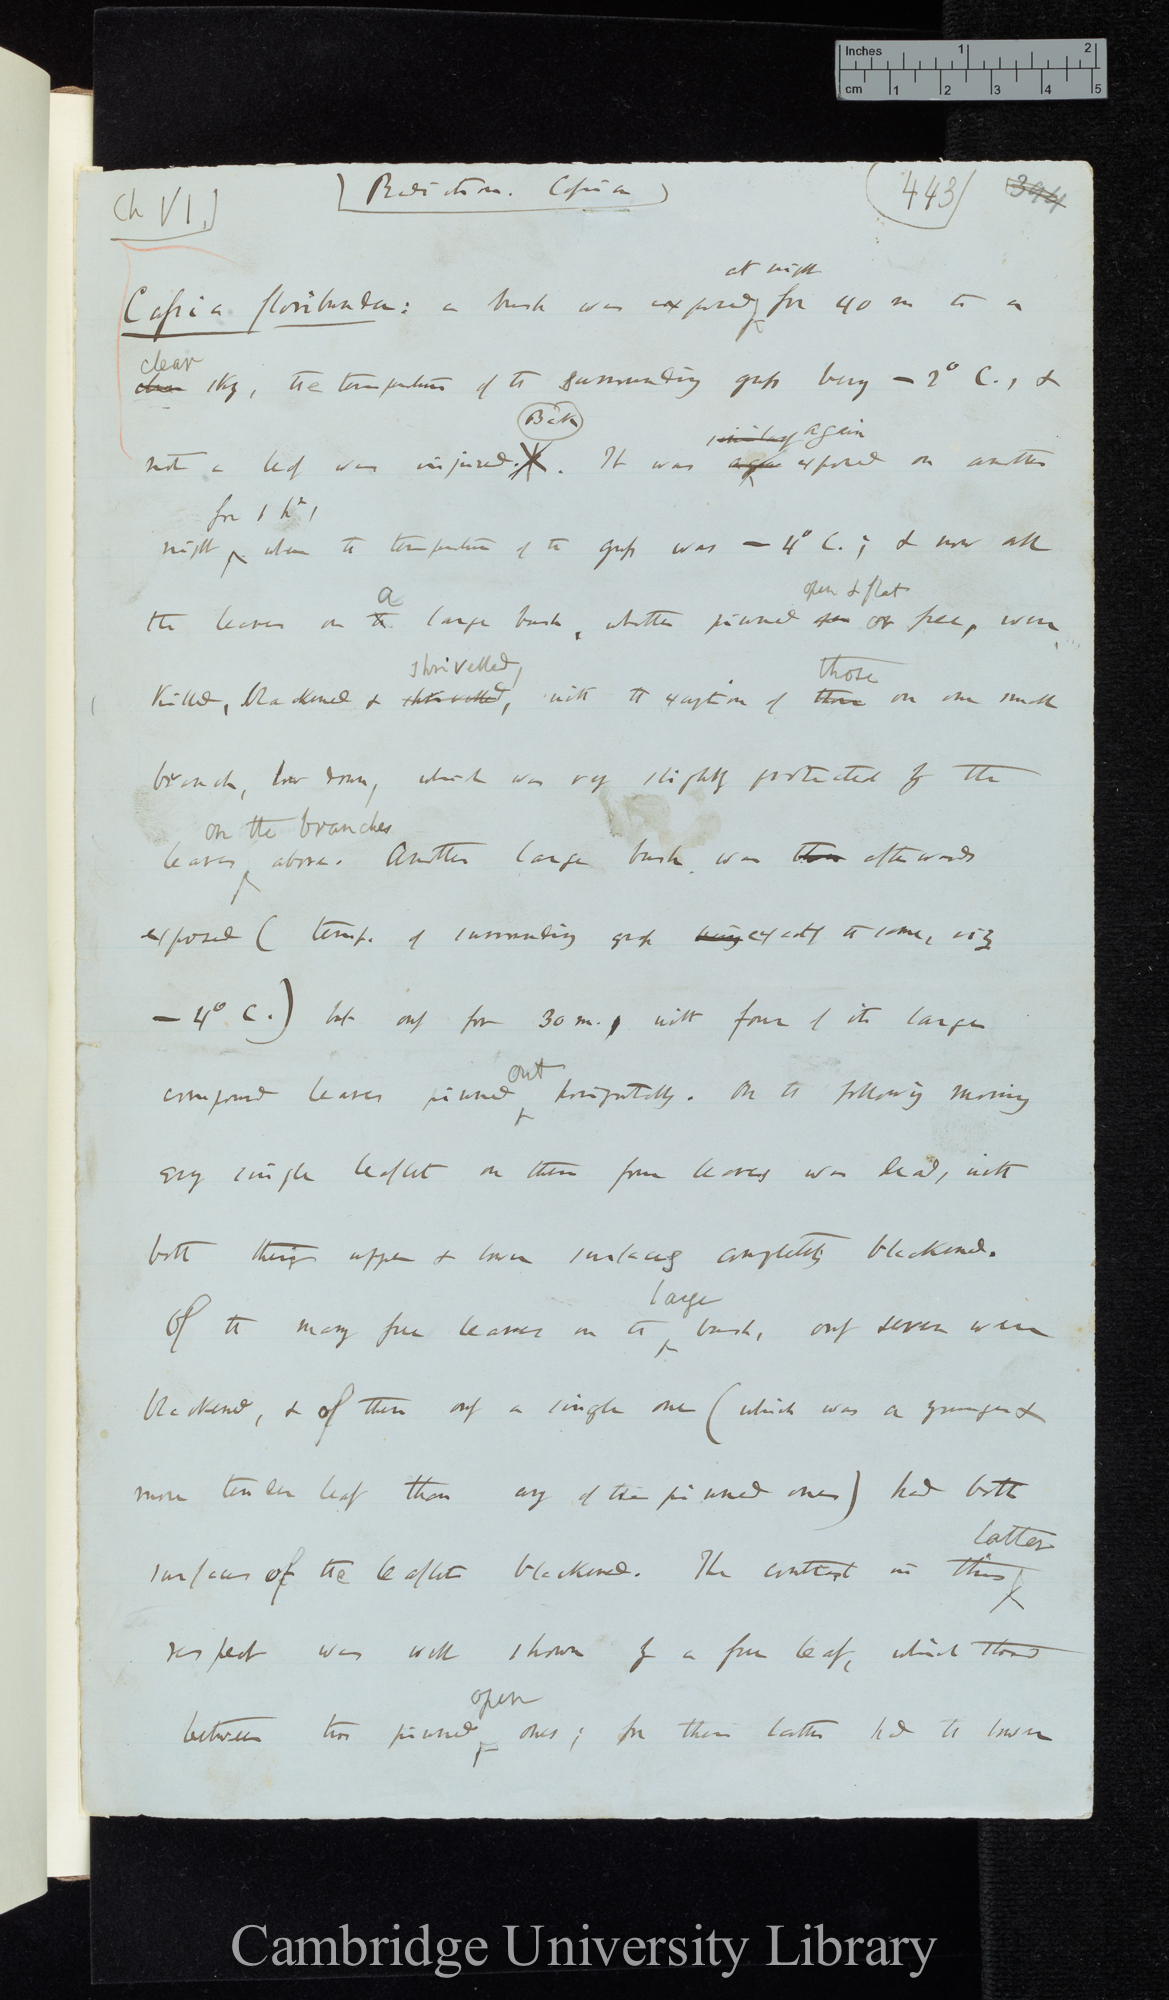 Inches 1 2
cm 1 2 3 4 5
Ch VI.)
(Radiation. Cassia)
(443) 394
at night
Cassia floribunda: a bush was exposed for 40 m to a
clear
clear sky, the temperature of the surrounding grass being – 2° C., &
Back
not a leaf was injured. X. It was similarly again
again exposed on another
for 1 hr,
night when the temperature of the grass was – 4° C.; & now all
a open & flat
the leaves on the large bush, whether pinned open or free, were
shrivelled, those
killed, blackened & shrivelled, with the exception of those on one small
branch, low down, which was very slightly protected by the
on the branches
leaves above. Another large bush was then afterwards
exposed (temp. of surrounding grass being exactly the same, viz
– 4° C.) but only for 30 m., with four of its large
out
compound leaves pinned horizontally. On the following morning
every single leaflet on these four leaves was dead, with
both their upper & lower surfaces completely blackened.
large
Of the many free leaves on the bush, only seven were
blackened, & of these only a single one (which was a younger &
more tender leaf than any of the pinned ones) had both
latter
surfaces of the leaflets blackened. The contrast in this
respect was well shown by a free leaf, which stood
open
between two pinned ones; for these latter had the lower
Cambridge University Library